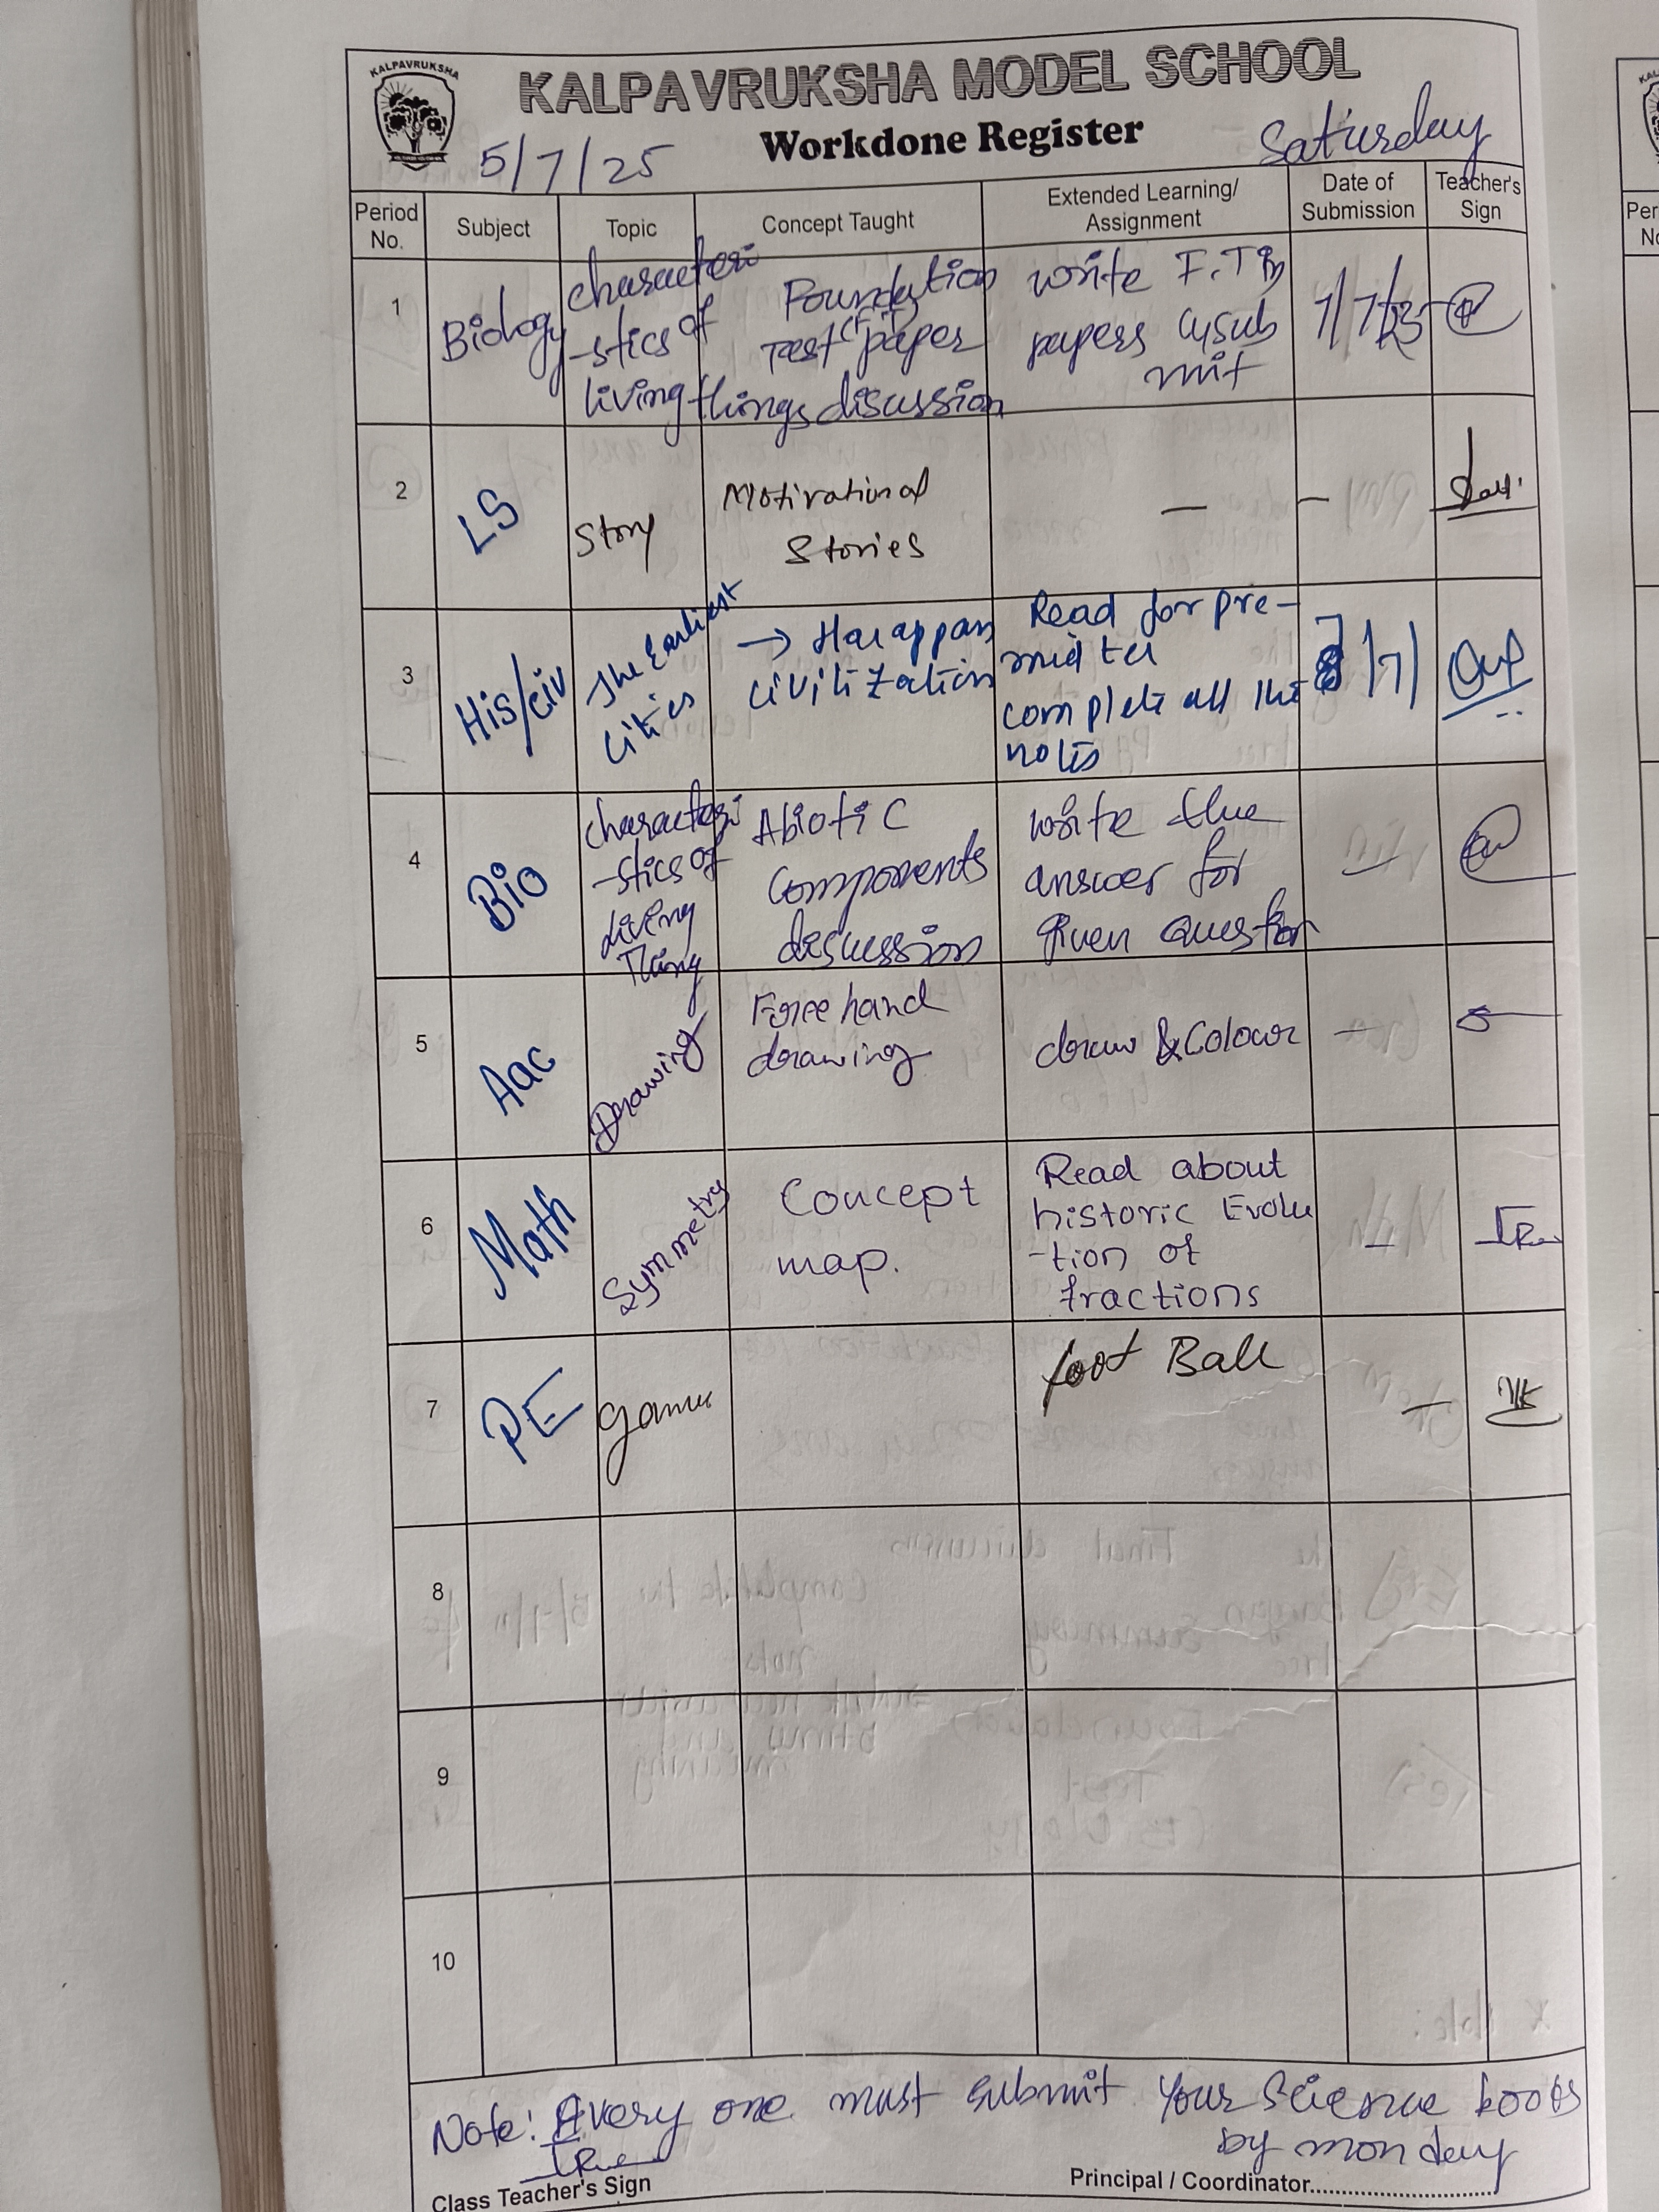 KALPAVRUKSHA
KALPAVRUKSHA MODEL SCHOOL
Workdone Register
5/7/25
Saturday
Period No.
Subject
Topic
Concept Taught
Extended Learning/ Assignment
Date of Submission
Teacher's Sign
1
Biology
characteri
-stics of
living things
Foundation
Test (F.T) paper
discussion
write F.T in
papers & sub
mit
7/7/25
2
LS
Story
Motivational
Stories
—
—
3
His/civ
The Earliest
cities
→ Harappan
civilization
Read for pre-
midter
complete all the
notes
7/
4
Bio
characteri
-stics of
living
Thing
Abiotic
components
discussion
write the
answer for
given question
—
5
Aac
Drawing
Free hand
drawing
draw & Colour
—
6
Math
Symmetry
Concept
map.
Read about
historic Evolu
-tion of
fractions
—
7
PE
games
foot Ball
—
8
9
10
Note: Every one must submit your Science books
by monday
Class Teacher's Sign
Principal / Coordinator